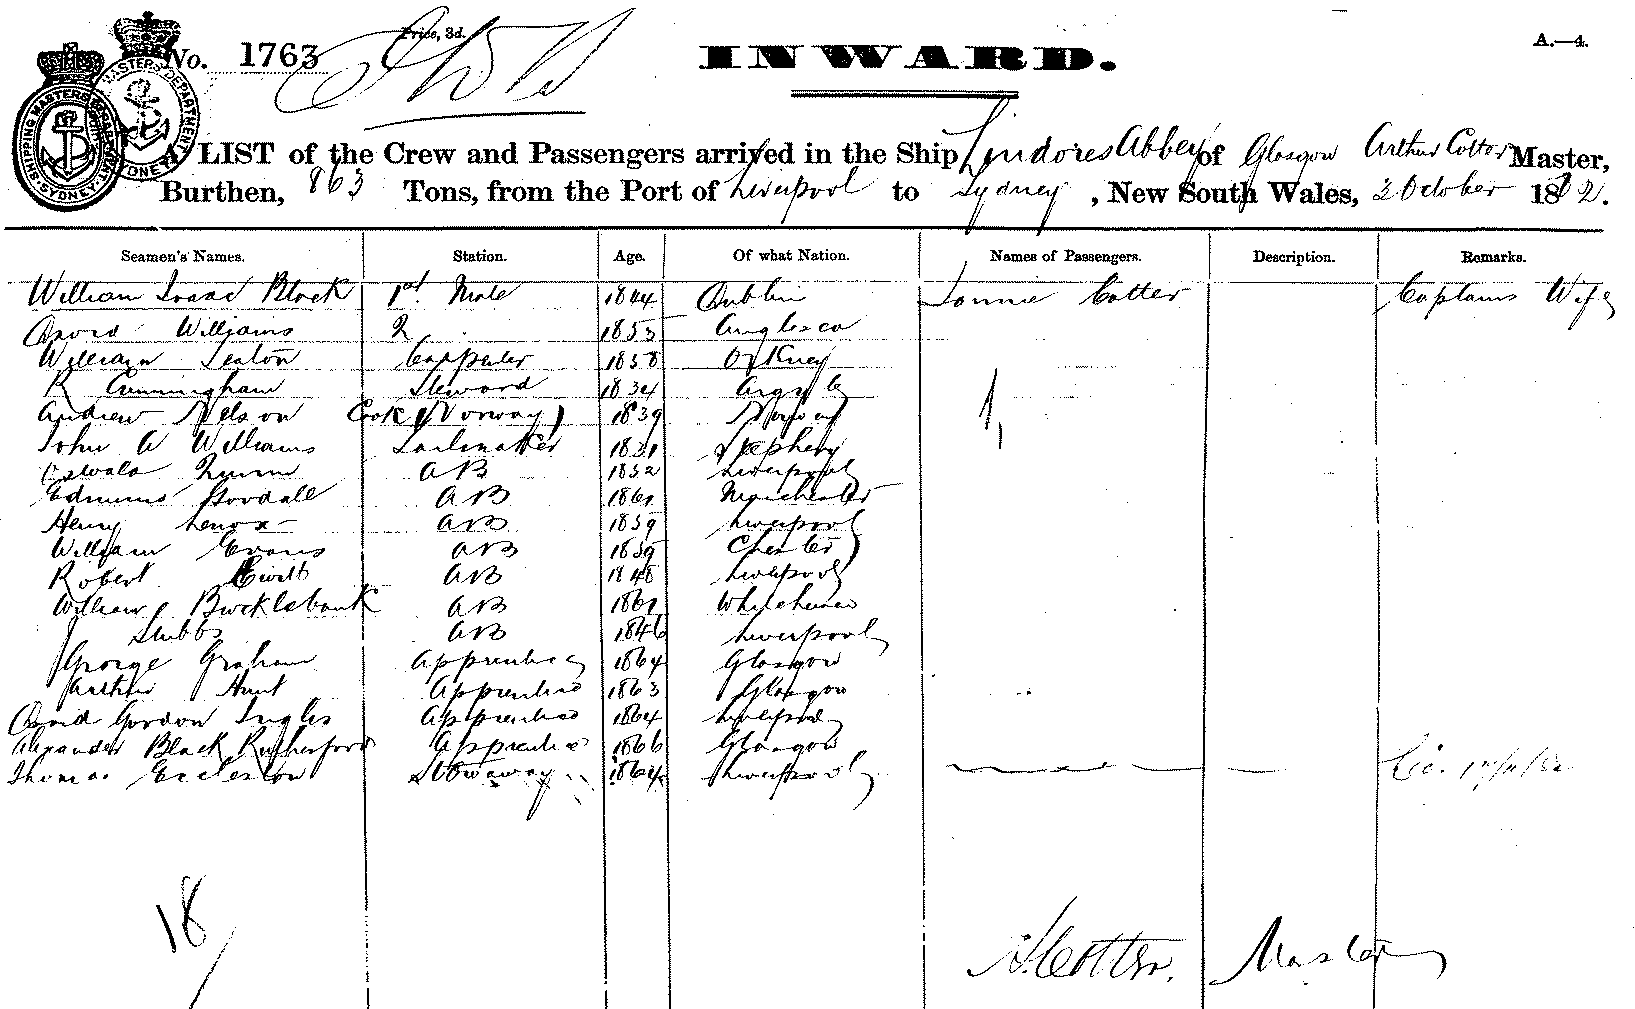 No. 1763
Price, 3d.
INWARD.
A.—4.
SHIPPING MASTERS DEPARTMENT SYDNEY
A LIST of the Crew and Passengers arrived in the Ship Lindores Abbey of Glasgow Arthur Cotter Master,
Burthen, 863 Tons, from the Port of Liverpool to Sydney, New South Wales, 3 October 1882.
Seamen's Names. Station. Age. Of what Nation. Names of Passengers. Description. Remarks.
William Isaac Black 1st Mate 1844 Dublin Cotter Captains Wife
David Williams 2 1853 Anglesea
William Seaton Carpenter 1858 Orkney
R Cunningham Steward 1834 Argyle
Andrew Nelson Cook (Norway) 1839 Norway
1,
John A Williams Sailmaker 1831 Stepheny
Oswald Quinn AB 1852 Liverpool
Edmund Goodall AB 1861 Manchester
Henry Lenox AB 1859 Liverpool
William Evans AB 1859 Chester
Robert AB 1848 Liverpool
William Bucklebank AB 1861 Whitehaven
J Stubbs AB 1846 Liverpool
George Graham Apprentice 1864 Glasgow
Arthur Hunt Apprentice 1863 Glasgow
David Gordon Ingles Apprentice 1864 Liverpool
Alexander Black Rutherford Apprentice 1866 Glasgow
Thomas Eccleston Stowaway 1864 Liverpool
18
A Cotter. Master